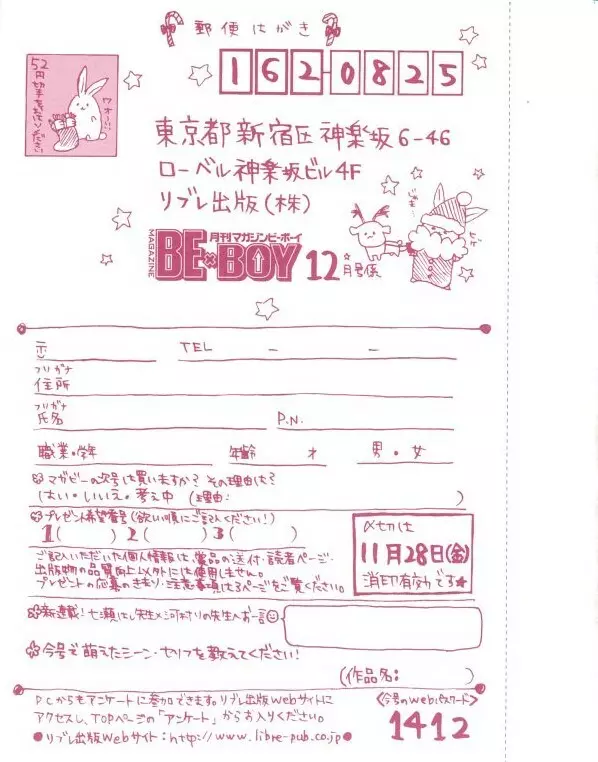 郵便はがき
162-0825
52円切手をおはりください
ワオー!!
東京都新宿区神楽坂6-46
ローベル神楽坂ビル4F
リブレ出版(株)
MAGAZINE BE×BOY 月刊マガジンビーボーイ 12月号係
〒 TEL - -
フリガナ
住所
フリガナ
氏名 P.N.
職業・学年 年齢 才 男・女
マガビーの次号は買いますか? その理由は?
(はい・いいえ・考え中 (理由: )
プレゼント希望番号(欲い順にご記入ください!)
1( ) 2( ) 3( )
〆切は
11月28日(金)
消印有効です★
ご記入いただいた個人情報は、賞品の送付・読者ページ・
出版物の品質向上以外には使用しません。
プレゼントの応募のきまり・注意事項は ページをご覧ください。
新連載! 七瀬 先生×河村 先生へお一言
今号で萌えたシーン・セリフを教えてください!
(作品名: )
PCからもアンケートに参加できます。リブレ出版Webサイトに
アクセスし、TOPページの「アンケート」からお入りください。
●リブレ出版Webサイト:http://www.libre-pub.co.jp●
<今号のWebパスワード>
1412